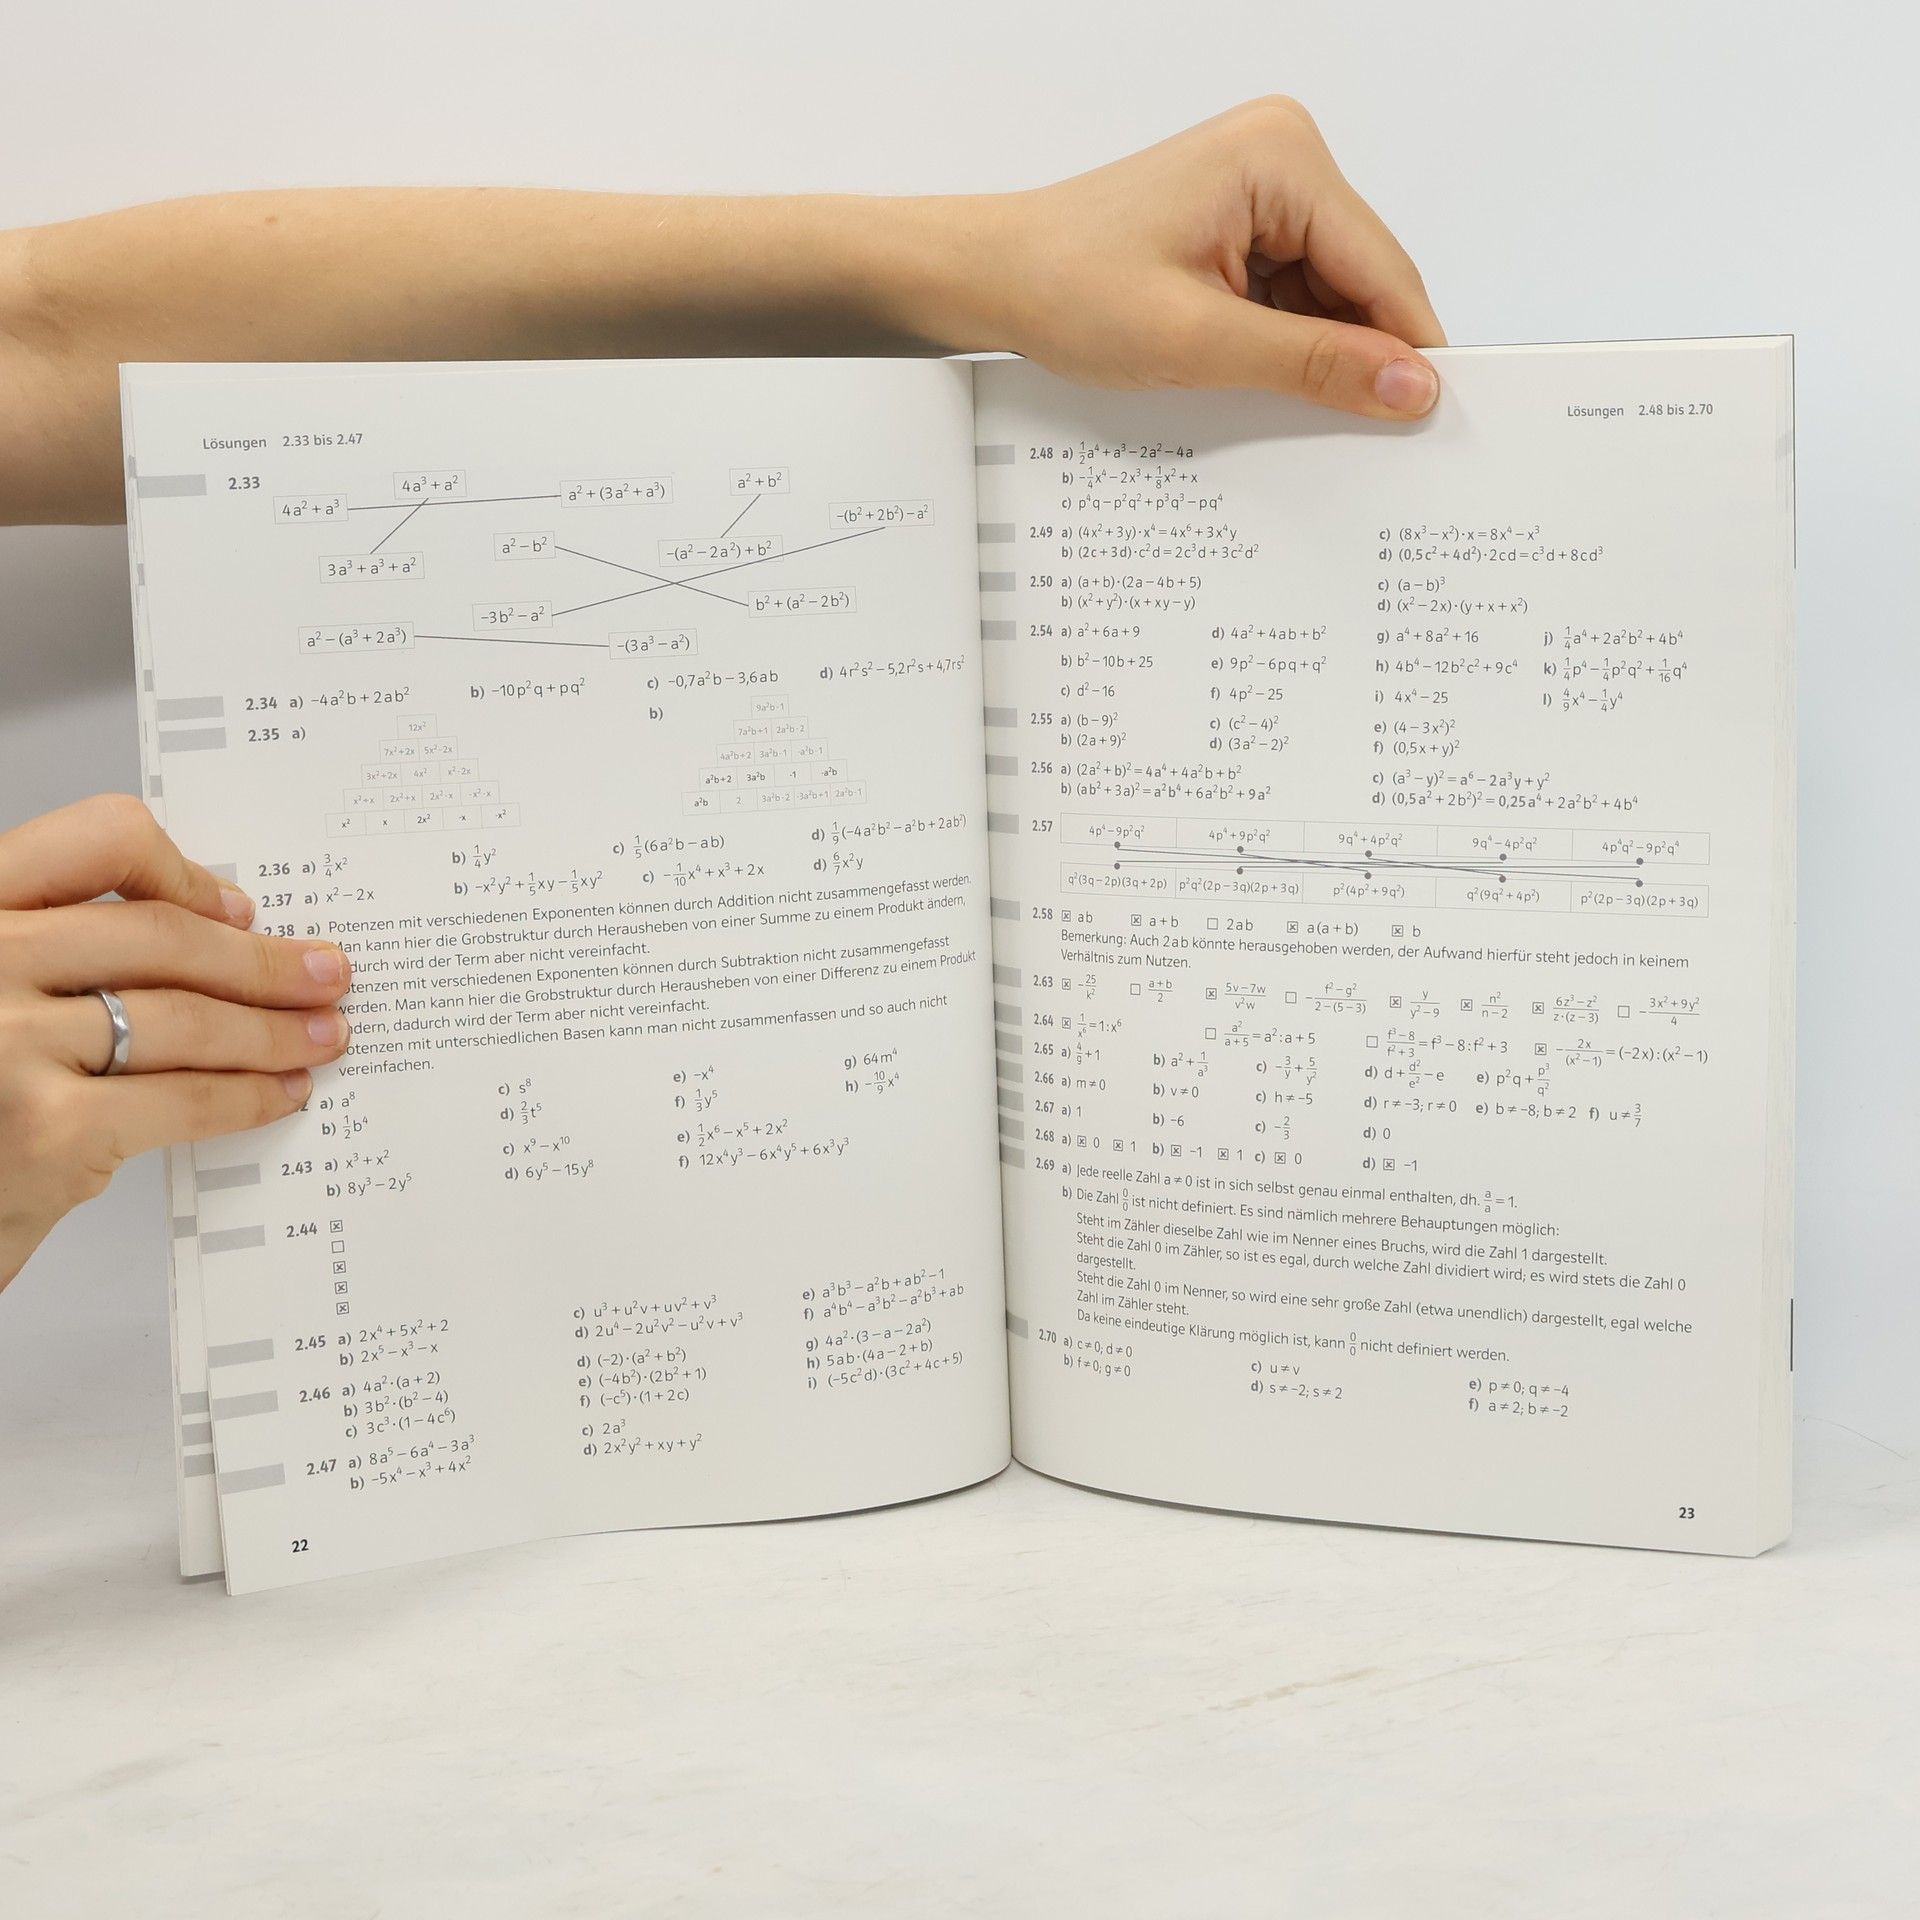 Lösungen 2.33 bis 2.47
2.33
4a³ + a²
a² + b²
4a² + a³
a² + (3a² + a³)
-(b² + 2b²) - a²
a² - b²
-(a² - 2a²) + b²
3a³ + a³ + a²
-3b² - a²
b² + (a² - 2b²)
a² - (a³ + 2a³)
-(3a³ - a²)
2.34 a) -4a²b + 2ab² b) -10p²q + pq² c) -0,7a²b - 3,6ab d) 4r²s² - 5,2r²s + 4,7rs²
2.35 a) b)
12x²
7x²+2x 5x²-2x
3x²+2x 4x² x²-2x
x²+x 2x²+x 2x²-x -x²-x
x² x 2x² -x -x²
9a²b-1
7a²b+1 2a²b-2
4a²b+2 3a²b-1 -a²b-1
a²b+2 3a²b -1 -a²b
a²b 2 3a²b-2 -3a²b+1 2a²b-1
2.36 a) 3/4 x² b) 1/4 y² c) 1/5 (6a²b - ab) d) 1/9 (-4a²b² - a²b + 2ab²)
2.37 a) x² - 2x b) -x²y² + 1/5 xy - 1/5 xy² c) -1/10 x⁴ + x³ + 2x d) 6/7 x²y
2.38 a) Potenzen mit verschiedenen Exponenten können durch Addition nicht zusammengefasst werden.
kann hier die Grobstruktur durch Herausheben von einer Summe zu einem Produkt ändern,
durch wird der Term aber nicht vereinfacht.
mit verschiedenen Exponenten können durch Subtraktion nicht zusammengefasst
werden. Man kann hier die Grobstruktur durch Herausheben von einer Differenz zu einem Produkt
dadurch wird der Term aber nicht vereinfacht.
mit unterschiedlichen Basen kann man nicht zusammenfassen und so auch nicht
vereinfachen.
a) a⁸ c) s⁸ e) -x⁴ g) 64m⁴
b) 1/2 b⁴ d) 2/3 t⁵ f) 1/3 y⁵ h) -10/9 x⁴
2.43 a) x³ + x² c) x⁹ - x¹⁰ e) 1/2 x⁶ - x⁵ + 2x²
b) 8y³ - 2y⁵ d) 6y⁵ - 15y⁸ f) 12x⁴y³ - 6x⁴y⁵ + 6x³y³
2.44 ☒
☐
☒
☒
☒
2.45 a) 2x⁴ + 5x² + 2 c) u³ + u²v + uv² + v³ e) a³b³ - a²b + ab² - 1
b) 2x⁵ - x³ - x d) 2u⁴ - 2u²v² - u²v + v³ f) a⁴b⁴ - a³b² - a²b³ + ab
2.46 a) 4a²·(a + 2) d) (-2)·(a² + b²) g) 4a²·(3 - a - 2a²)
b) 3b²·(b² - 4) e) (-4b²)·(2b² + 1) h) 5ab·(4a - 2 + b)
c) 3c³·(1 - 4c⁶) f) (-c⁵)·(1 + 2c) i) (-5c²d)·(3c² + 4c + 5)
2.47 a) 8a⁵ - 6a⁴ - 3a³ c) 2a³
b) -5x⁴ - x³ + 4x² d) 2x²y² + xy + y²
22
Lösungen 2.48 bis 2.70
2.48 a) 1/2 a⁴ + a³ - 2a² - 4a
b) -1/4 x⁴ - 2x³ + 1/8 x² + x
c) p⁴q - p²q² + p³q³ - pq⁴
2.49 a) (4x² + 3y)·x⁴ = 4x⁶ + 3x⁴y c) (8x³ - x²)·x = 8x⁴ - x³
b) (2c + 3d)·c²d = 2c³d + 3c²d² d) (0,5c² + 4d²)·2cd = c³d + 8cd³
2.50 a) (a + b)·(2a - 4b + 5) c) (a - b)³
b) (x² + y²)·(x + xy - y) d) (x² - 2x)·(y + x + x²)
2.54 a) a² + 6a + 9 d) 4a² + 4ab + b² g) a⁴ + 8a² + 16 j) 1/4 a⁴ + 2a²b² + 4b⁴
b) b² - 10b + 25 e) 9p² - 6pq + q² h) 4b⁴ - 12b²c² + 9c⁴ k) 1/4 p⁴ - 1/4 p²q² + 1/16 q⁴
c) d² - 16 f) 4p² - 25 i) 4x⁴ - 25 l) 4/9 x⁴ - 1/4 y⁴
2.55 a) (b - 9)² c) (c² - 4)² e) (4 - 3x²)²
b) (2a + 9)² d) (3a² - 2)² f) (0,5x + y)²
2.56 a) (2a² + b)² = 4a⁴ + 4a²b + b² c) (a³ - y)² = a⁶ - 2a³y + y²
b) (ab² + 3a)² = a²b⁴ + 6a²b² + 9a² d) (0,5a² + 2b²)² = 0,25a⁴ + 2a²b² + 4b⁴
2.57 4p⁴ - 9p²q² 4p⁴ + 9p²q² 9q⁴ + 4p²q² 9q⁴ - 4p²q² 4p⁴q² - 9p²q⁴
q²(3q - 2p)(3q + 2p) p²q²(2p - 3q)(2p + 3q) p²(4p² + 9q²) q²(9q² + 4p²) p²(2p - 3q)(2p + 3q)
2.58 ☒ ab ☒ a + b ☐ 2ab ☒ a(a + b) ☒ b
Bemerkung: Auch 2ab könnte herausgehoben werden, der Aufwand hierfür steht jedoch in keinem
Verhältnis zum Nutzen.
2.63 ☒ -25/k² ☐ (a+b)/2 ☒ (5v-7w)/(v²w) ☐ -(f²-g²)/(2-(5-3)) ☒ y/(y²-9) ☒ n²/(n-2) ☒ (6z³-z²)/(z·(z-3)) ☐ -(3x²+9y²)/4
2.64 ☒ 1/x⁶ = 1:x⁶ ☐ a²/(a+5) = a²:a + 5 ☐ (f³-8)/(f²+3) = f³ - 8:f² + 3 ☒ -2x/(x²-1) = (-2x):(x² - 1)
2.65 a) 4/9 + 1 b) a² + 1/a³ c) -3/y + 5/y² d) d + d²/e² - e e) p²q + p³/q²
2.66 a) m ≠ 0 b) v ≠ 0 c) h ≠ -5 d) r ≠ -3; r ≠ 0 e) b ≠ -8; b ≠ 2 f) u ≠ 3/7
2.67 a) 1 b) -6 c) -2/3 d) 0
2.68 a) ☒ 0 ☒ 1 b) ☒ -1 ☒ 1 c) ☒ 0 d) ☒ -1
2.69 a) Jede reelle Zahl a ≠ 0 ist in sich selbst genau einmal enthalten, dh. a/a = 1.
b) Die Zahl 0/0 ist nicht definiert. Es sind nämlich mehrere Behauptungen möglich:
Steht im Zähler dieselbe Zahl wie im Nenner eines Bruchs, wird die Zahl 1 dargestellt.
Steht die Zahl 0 im Zähler, so ist es egal, durch welche Zahl dividiert wird; es wird stets die Zahl 0
dargestellt.
Steht die Zahl 0 im Nenner, so wird eine sehr große Zahl (etwa unendlich) dargestellt, egal welche
Zahl im Zähler steht.
Da keine eindeutige Klärung möglich ist, kann 0/0 nicht definiert werden.
2.70 a) c ≠ 0; d ≠ 0 c) u ≠ v e) p ≠ 0; q ≠ -4
b) f ≠ 0; g ≠ 0 d) s ≠ -2; s ≠ 2 f) a ≠ 2; b ≠ -2
23